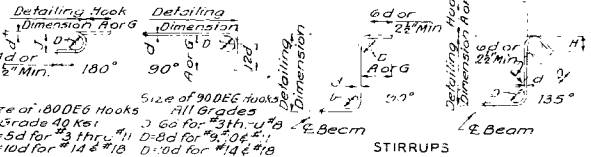 Detailing Hook
Dimension A or G
d
J
D
2½" Min.
180°
Detailing
Dimension
d
D
J
A or G
12d
90°
Size of 180 DEG Hooks
Grade 40 KSI
=5d for #3 thru #11
=10d for #14 & #18
Size of 90 DEG Hooks
All Grades
D=6d for #3 thru #8
D=8d for #9, 10 & 11
D=10d for #14 & #18
Detailing
Dimension
6d or
2½" Min.
D
A or G
90°
℄ Beam
Detailing Hook
Dimension A or
6d or
2½" Min.
H
d
D
135°
℄ Beam
STIRRUPS